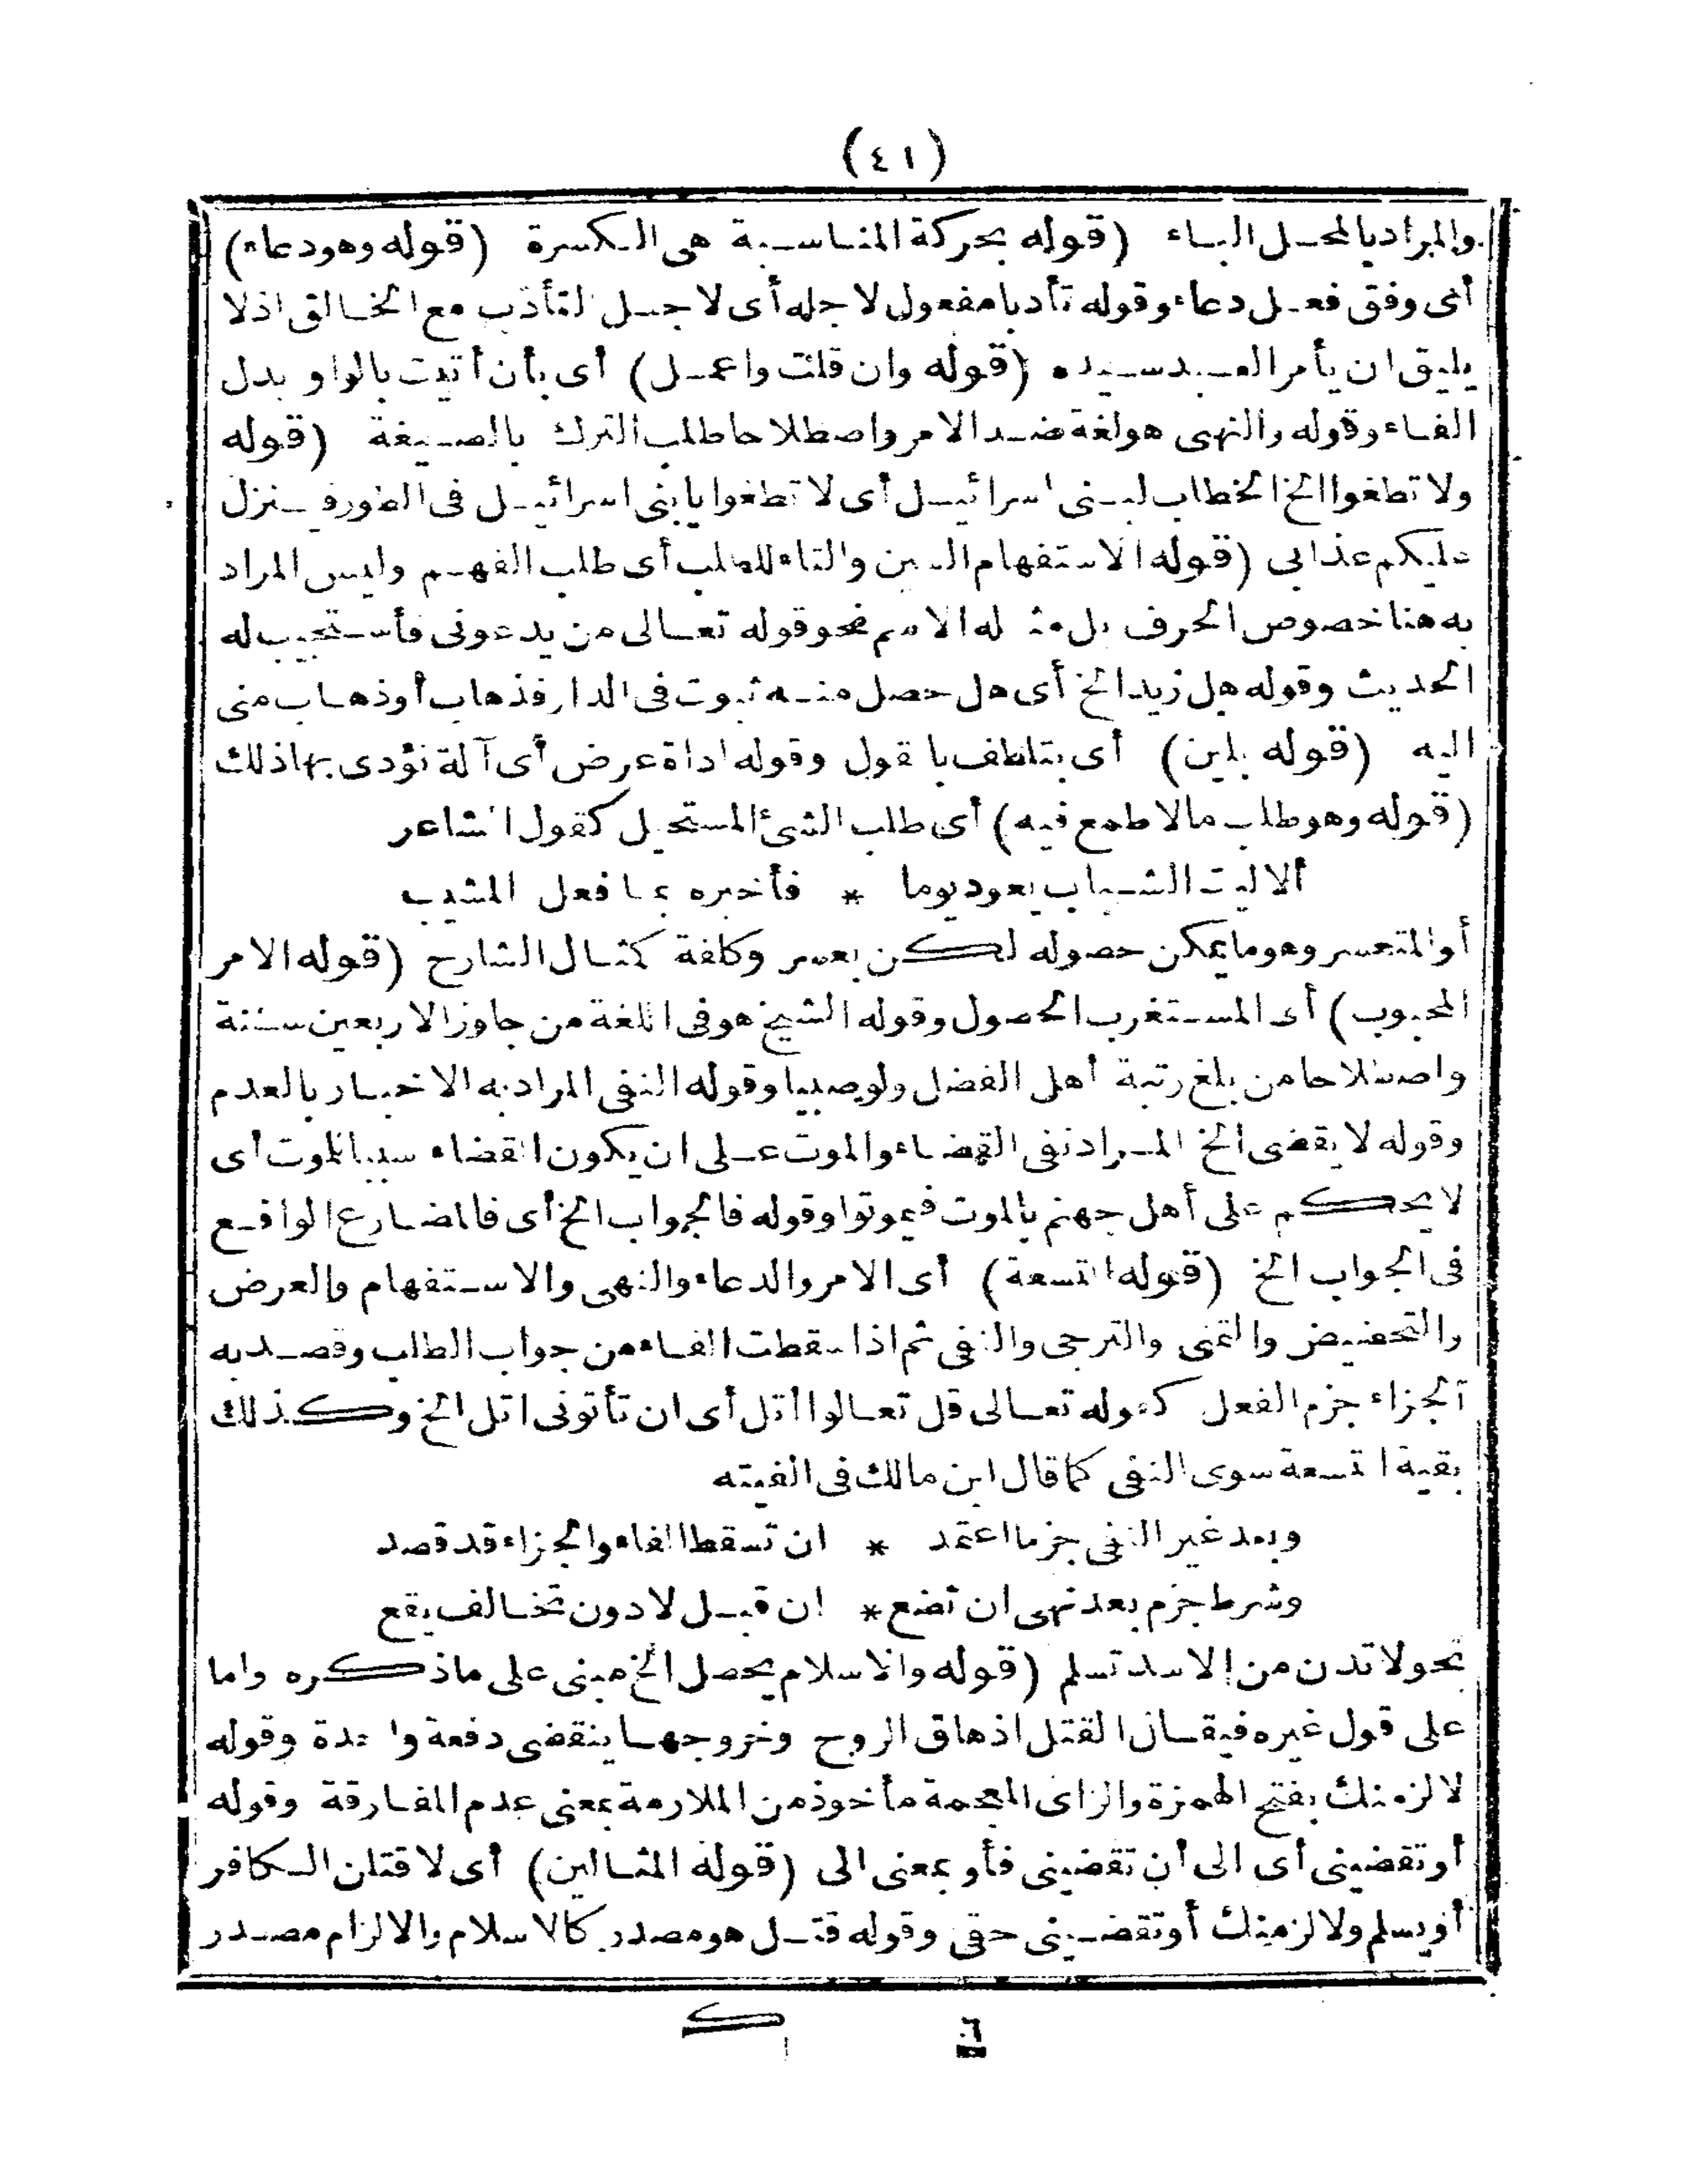 (٤١)
والمراد بالمحل الباء (قوله بحركة المناسبة هى الكسرة (قوله وهو دعاء)
أى وفق فعل دعاء وقوله تأدبا مفعول لاجله أى لاجل التأدب مع الخالق اذ لا
يليق ان يأمر العبد سيده (قوله وان قلت واعمل) أى بأن أتيت بالواو بدل
الفاء وقوله والنهى هو لغة ضد الامر واصطلاحا طلب الترك بالصيغة (قوله
ولا تطغوا الخ الخطاب لبنى اسرائيل أى لا تطغوا يا بنى اسرائيل فى الطور فينزل
عليكم عذابى (قوله الاستفهام السين والتاء للطلب أى طلب الفهم وليس المراد
به هنا خصوص الحرف بل مثله الاسم نحو قوله تعالى من يدعونى فأستجيب له
الحديث وقوله هل زيد الخ أى هل حصل منه ثبوت فى الدار فذهاب أو ذهاب منى
اليه (قوله بلين) أى بتلطف با قول وقوله اداة عرض أى آلة نؤدى بها ذلك
(قوله وهو طلب مالا طمع فيه) أى طلب الشئ المستحيل كقول الشاعر
ألا ليت الشباب يعود يوما * فأخبره بما فعل المشيب
أو المتعسر وهو ما يمكن حصوله لكن بعسر وكلفة كمثال الشارح (قوله الامر
المحبوب) أى المستغرب الحصول وقوله الشيخ هو فى اللغة من جاوز الاربعين سنة
واصطلاحا من بلغ رتبة أهل الفضل ولو صبيا وقوله النفى المراد به الاخبار بالعدم
وقوله لا يقضى الخ المراد نفى القضاء والموت على ان يكون القضاء سببا للموت أى
لا يحكم على أهل جهنم بالموت فيموتوا وقوله فالجواب الخ أى فالمضارع الواقع
فى الجواب الخ (قوله التسعة) أى الامر والدعاء والنهى والاستفهام والعرض
والتحضيض والتمنى والترجى والنفى ثم اذا سقطت الفاء من جواب الطلب وقصد به
الجزاء جزم الفعل كقوله تعالى قل تعالوا أتل أى ان تأتونى اتل الخ وكذلك
بقية التسعة سوى النفى كما قال ابن مالك فى الفيته
وبعد غير النفى جزما اعتمد * ان تسقط الفاء والجزاء قد قصد
وشرط جزم بعد نهى ان تضع * ان قبل لا دون تخالف يقع
نحو لا تدن من الاسد تسلم (قوله والاسلام يحصل الخ مبنى على ماذكره واما
على قول غيره فيقال القتل اذهاق الروح وخروجها ينقضى دفعة واحدة وقوله
لالزمنك بفتح الهمزة والزاى المعجمة مأخوذ من الملازمة بمعنى عدم المفارقة وقوله
أو تقضينى أى الى أن تقضينى فأو بمعنى الى (قوله المثالين) أى لاقتلن الكافر
أو يسلم ولالزمنك أو تقضينى حقى وقوله قتل هو مصدر كالاسلام والالزام مصدر
٦ ك